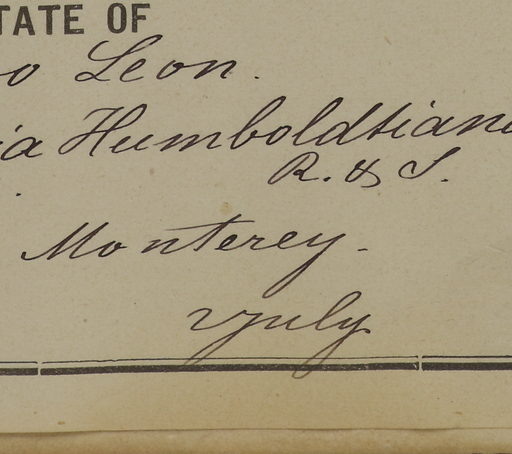 TATE OF
o Leon.
ia Humboldtiana
R. & S.
Monterey.
July